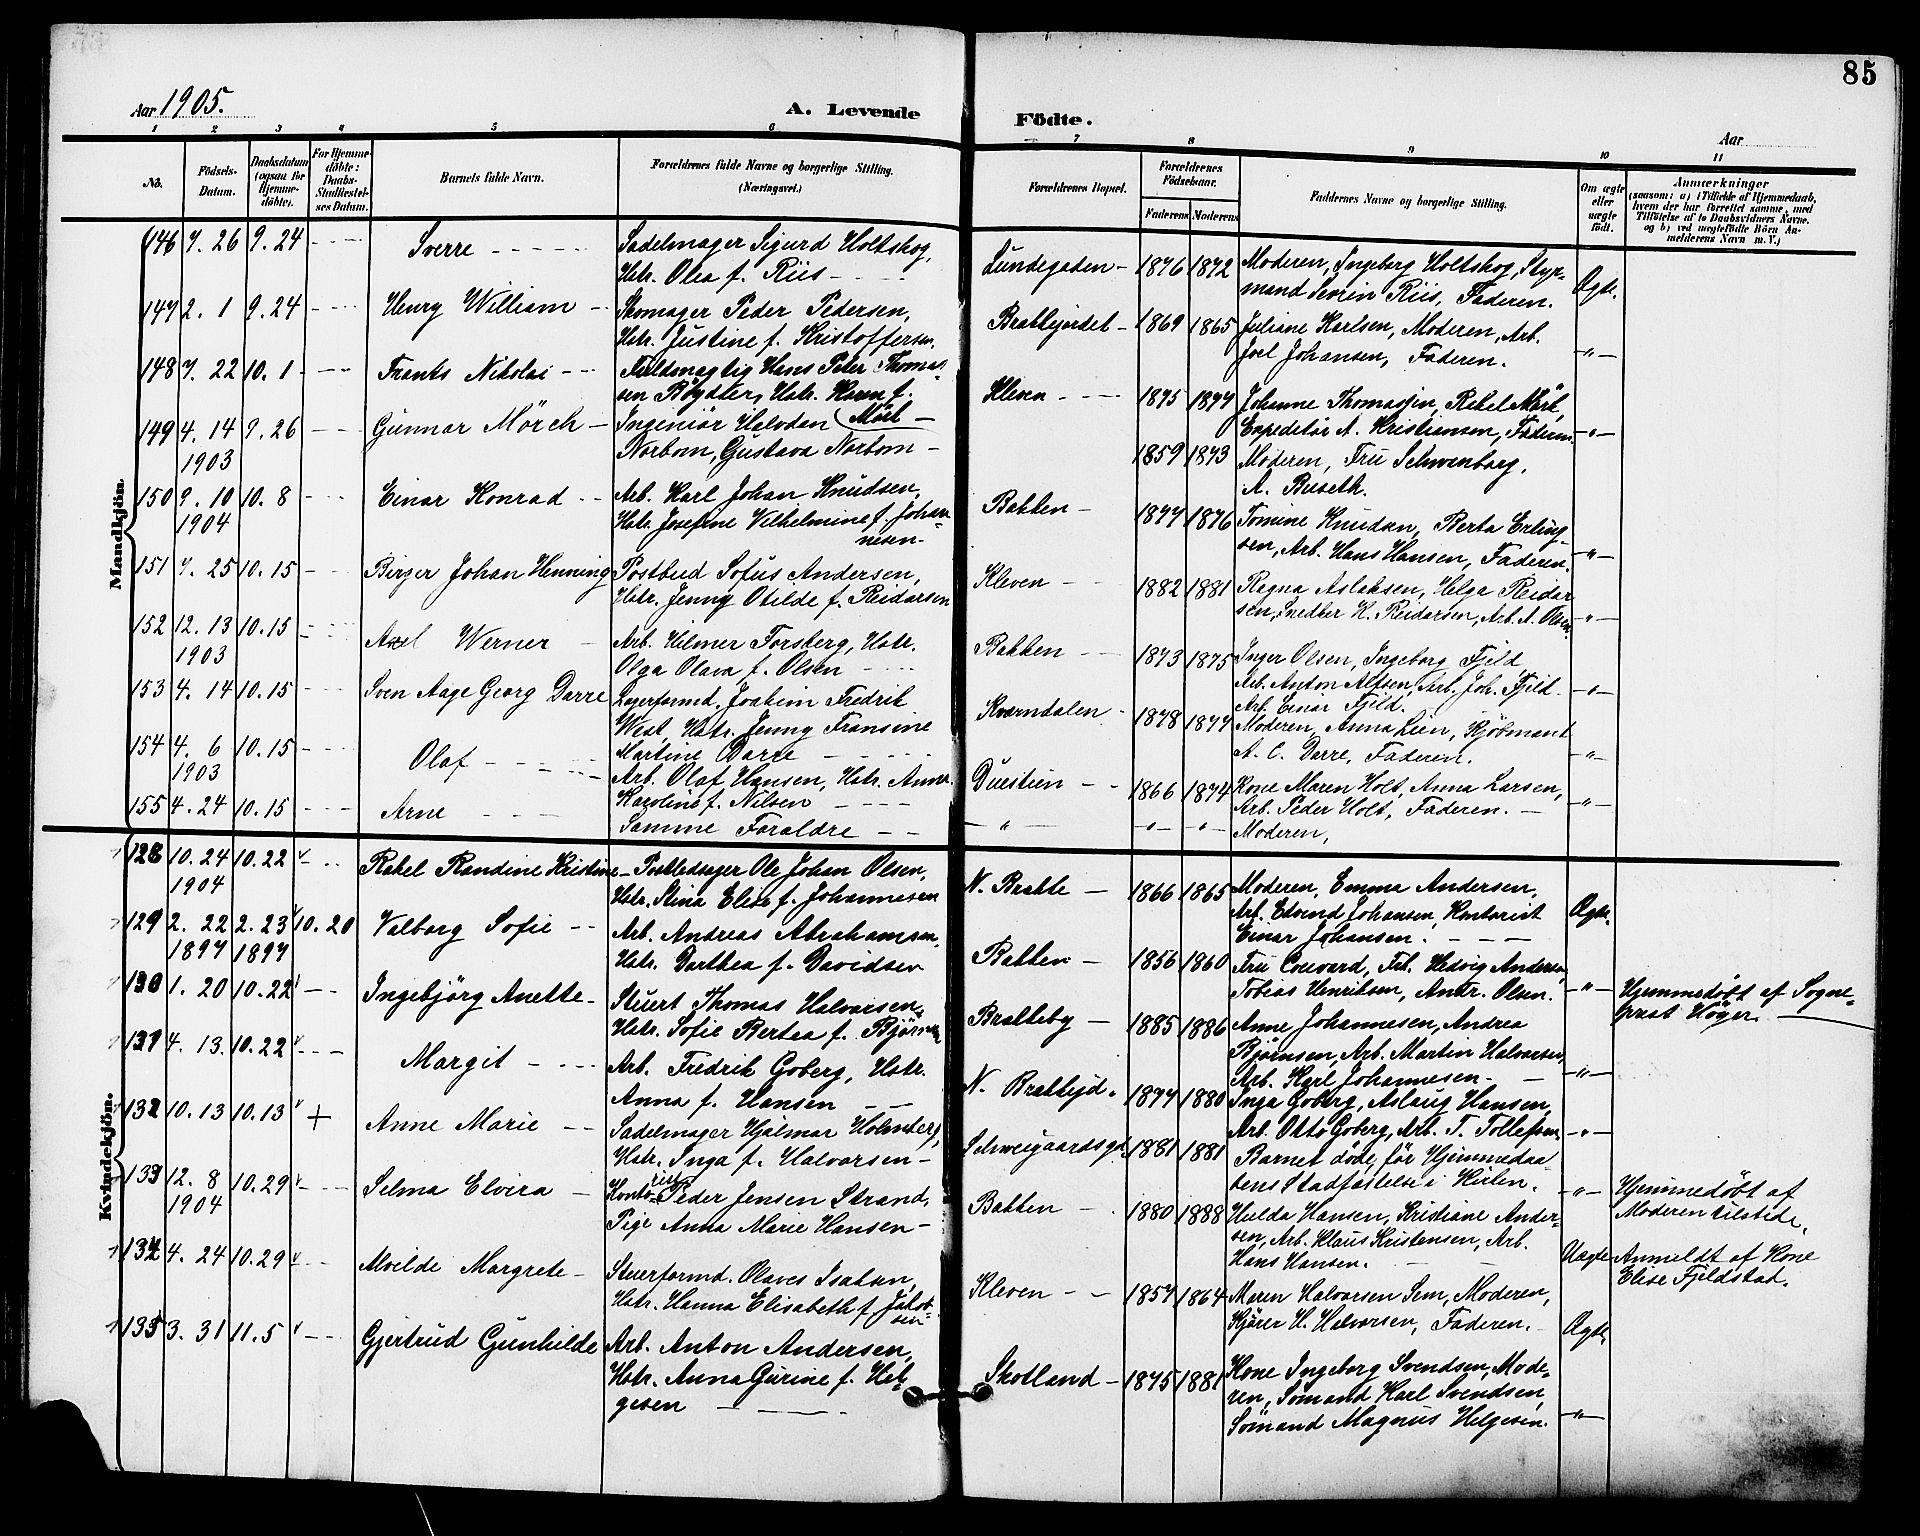 85
Aar 1905.
A. Levende Födte.
Aar
1 2 3 4 5 6 7 8 9 10 11
No.
Födsels-
Datum.
Daabsdatum
(ogsaa for
Hjemme-
döbte).
For Hjemme-
döbte:
Daabs-
Stadfæstel-
ses Datum.
Barnets fulde Navn.
Forældrenes fulde Navne og borgerlige Stilling.
(Næringsvei.)
Forældrenes Bopæl.
Forældrenes
Födselsaar.
Faderens Moderens
Faddernes Navne og borgerlige Stilling.
Om ægte
eller
uægte
födt.
Anmærkninger
(saasom: a) i Tilfælde af Hjemmedaab,
hvem der har forrettet samme, med
Tilföielse af to Daabsvidners Navne,
og b) ved uægtefödte Börn An-
melderens Navn m. V.)
Mandkjön.
146 7. 26 9. 24 Sverre Sadelmager Sigurd Holtskog,
Hstr. Olea f. Riis
Lundegaden 1876 1872 Moderen, Ingeborg Holtskog, Styr-
mand Severin Riis, Faderen. Ægte.
147 2. 1 9. 24 Henry William Skomager Peder Pedersen,
Hstr. Justine f. Kristoffersen
Brattejordet 1869 1865 Juliane Karlsen, Moderen, Arb.
Joel Johansen, Faderen. -"-
148 7. 22 10. 1 Frants Nikolai Fuldmægtig Hans Peter Thomas-
sen Röydter, Hstr. Karen f.
Mörk
Kleven 1875 1877 Johanne Thomassen, Rakel Mörk,
Expeditör A. Kristiansen, Faderen -"-
149 4. 14 9. 26 Gunnar Mörch Ingeniör Halvdan
1903 Norbom, Gustava Norbom
1859 1873 Moderen, Fru Schwenborg,
A. Buseth.
150 9. 10 10. 8 Einar Konrad Arb. Karl Johan Knudsen,
1904 Hstr. Josefine Vilhelmine f. Johan-
nesen
Bakken 1877 1876 Tomine Knudsen, Berta Erling-
sen, Arb. Hans Hansen, Faderen. -"-
151 7. 25 10. 15 Birger Johan Henning Postbud Sofus Andersen,
Hstr. Jenny Otilde f. Reidarsen
Kleven 1882 1881 Ragna Aslaksen, Helga Reidar-
sen, Snedker K. Reidarsen, Arb. A. Olsen. -"-
152 12. 13 10. 15 Axel Werner Arb. Hilmer Forsberg, Hstr.
1903 Olga Olava f. Olsen
Bakken 1873 1875 Inger Olsen, Ingeborg Fjeld
Arb. Anton Alfsen, Arb. Joh. Fjeld -"-
Arb. Einar Fjeld.
153 4. 14 10. 15 Sven Aage Georg Darre Lagerformd. Joakim Fredrik
West, Hstr. Jenny Fransine
Martine Darre
Kværndalen 1878 1877 Moderen, Anna Lien, Kjöbmant
A. C. Darre, Faderen. -"-
154 4. 6 10. 15 Olaf Arb. Olaf Hansen, Hstr. Anna
1903 Karoline f. Nilsen
Duestien 1866 1874 Kone Maren Holt, Anna Larsen,
Arb. Peder Holt, Faderen. -"-
155 4. 24 10. 15 Arne Samme Foraldre
-"- -"- -"- Moderen,
Kvindekjön.
128 10. 24 10. 22 Rakel Randine Kristine Postledsager Ole Johan Olsen,
1904 Hstr. Stina Elise f. Johannesen
N. Bratte 1866 1865 Moderen, Emma Andersen,
Arb. Edvind Johansen, Kontorist
Einar Johansen. Ægte.
129 2. 22 2. 23 10. 20 Valborg Sofie Arb. Andreas Abrahamsen,
1897 1897 Hstr. Dorthea f. Davidsen
Bakken 1856 1860 Fru Couvard, Frk. Hedvig Andersen,
Tobias Henriksen, Andr. Olsen. -"- Hjemmedöbt af Sogne-
prest Höyer.
130 1. 20 10. 22 Ingebjörg Anette Stuert Thomas Halvorsen,
Hstr. Sofie Bertea f. Björnsen
Bratteby 1885 1886 Anne Johannesen, Andrea
Björnsen, Arb. Martin Halvorsen,
Arb. Karl Johannesen -"-
131 4. 13 10. 22 Margit Arb. Fredrik Goberg, Hstr.
Anna f. Hansen
N. Brattejd. 1877 1880 Inga Goberg, Aslaug Hansen,
Arb. Otto Goberg, Arb. T. Tollefsen. -"-
132 10. 13 10. 13 + Anne Marie Sadelmager Hjalmar Holmberg,
Hstr. Inga f. Halvorsen
Schweigaardsgd. 1881 1881 Barnet döde för Hjemmedaa-
bens Stadfæstelse i Kirken. -"- Hjemmedöbt af
Moderen tilstede.
133 12. 8 10. 29 Selma Elvira Kontorist Peder Jensen Strand,
1904 Pige Anna Marie Hansen
Bakken 1880 1888 Hulda Hansen, Kristiane Ander-
sen, Arb. Klaus Kristensen, Arb.
Hans Hansen. Uægte Anmeldt af Kone
Elise Fjeldstad.
134 4. 24 10. 29 Alvilde Margrete Stuerformd. Olaves Isaksen,
Hstr. Hanna Elisabeth f. Jakob-
sen
Kleven 1857 1864 Maren Halvorsen Sem, Moderen,
Kjörer H. Halvorsen, Faderen. Ægte
135 3. 31 11. 5 Gjertrud Gunhilde Arb. Anton Andersen,
Hstr. Anna Gurine f. Hel-
gesen
Skotland 1875 1881 Kone Ingeborg Svendsen, Mode-
ren, Sömand Karl Svendsen,
Sömand Magnus Helgesen. -"-